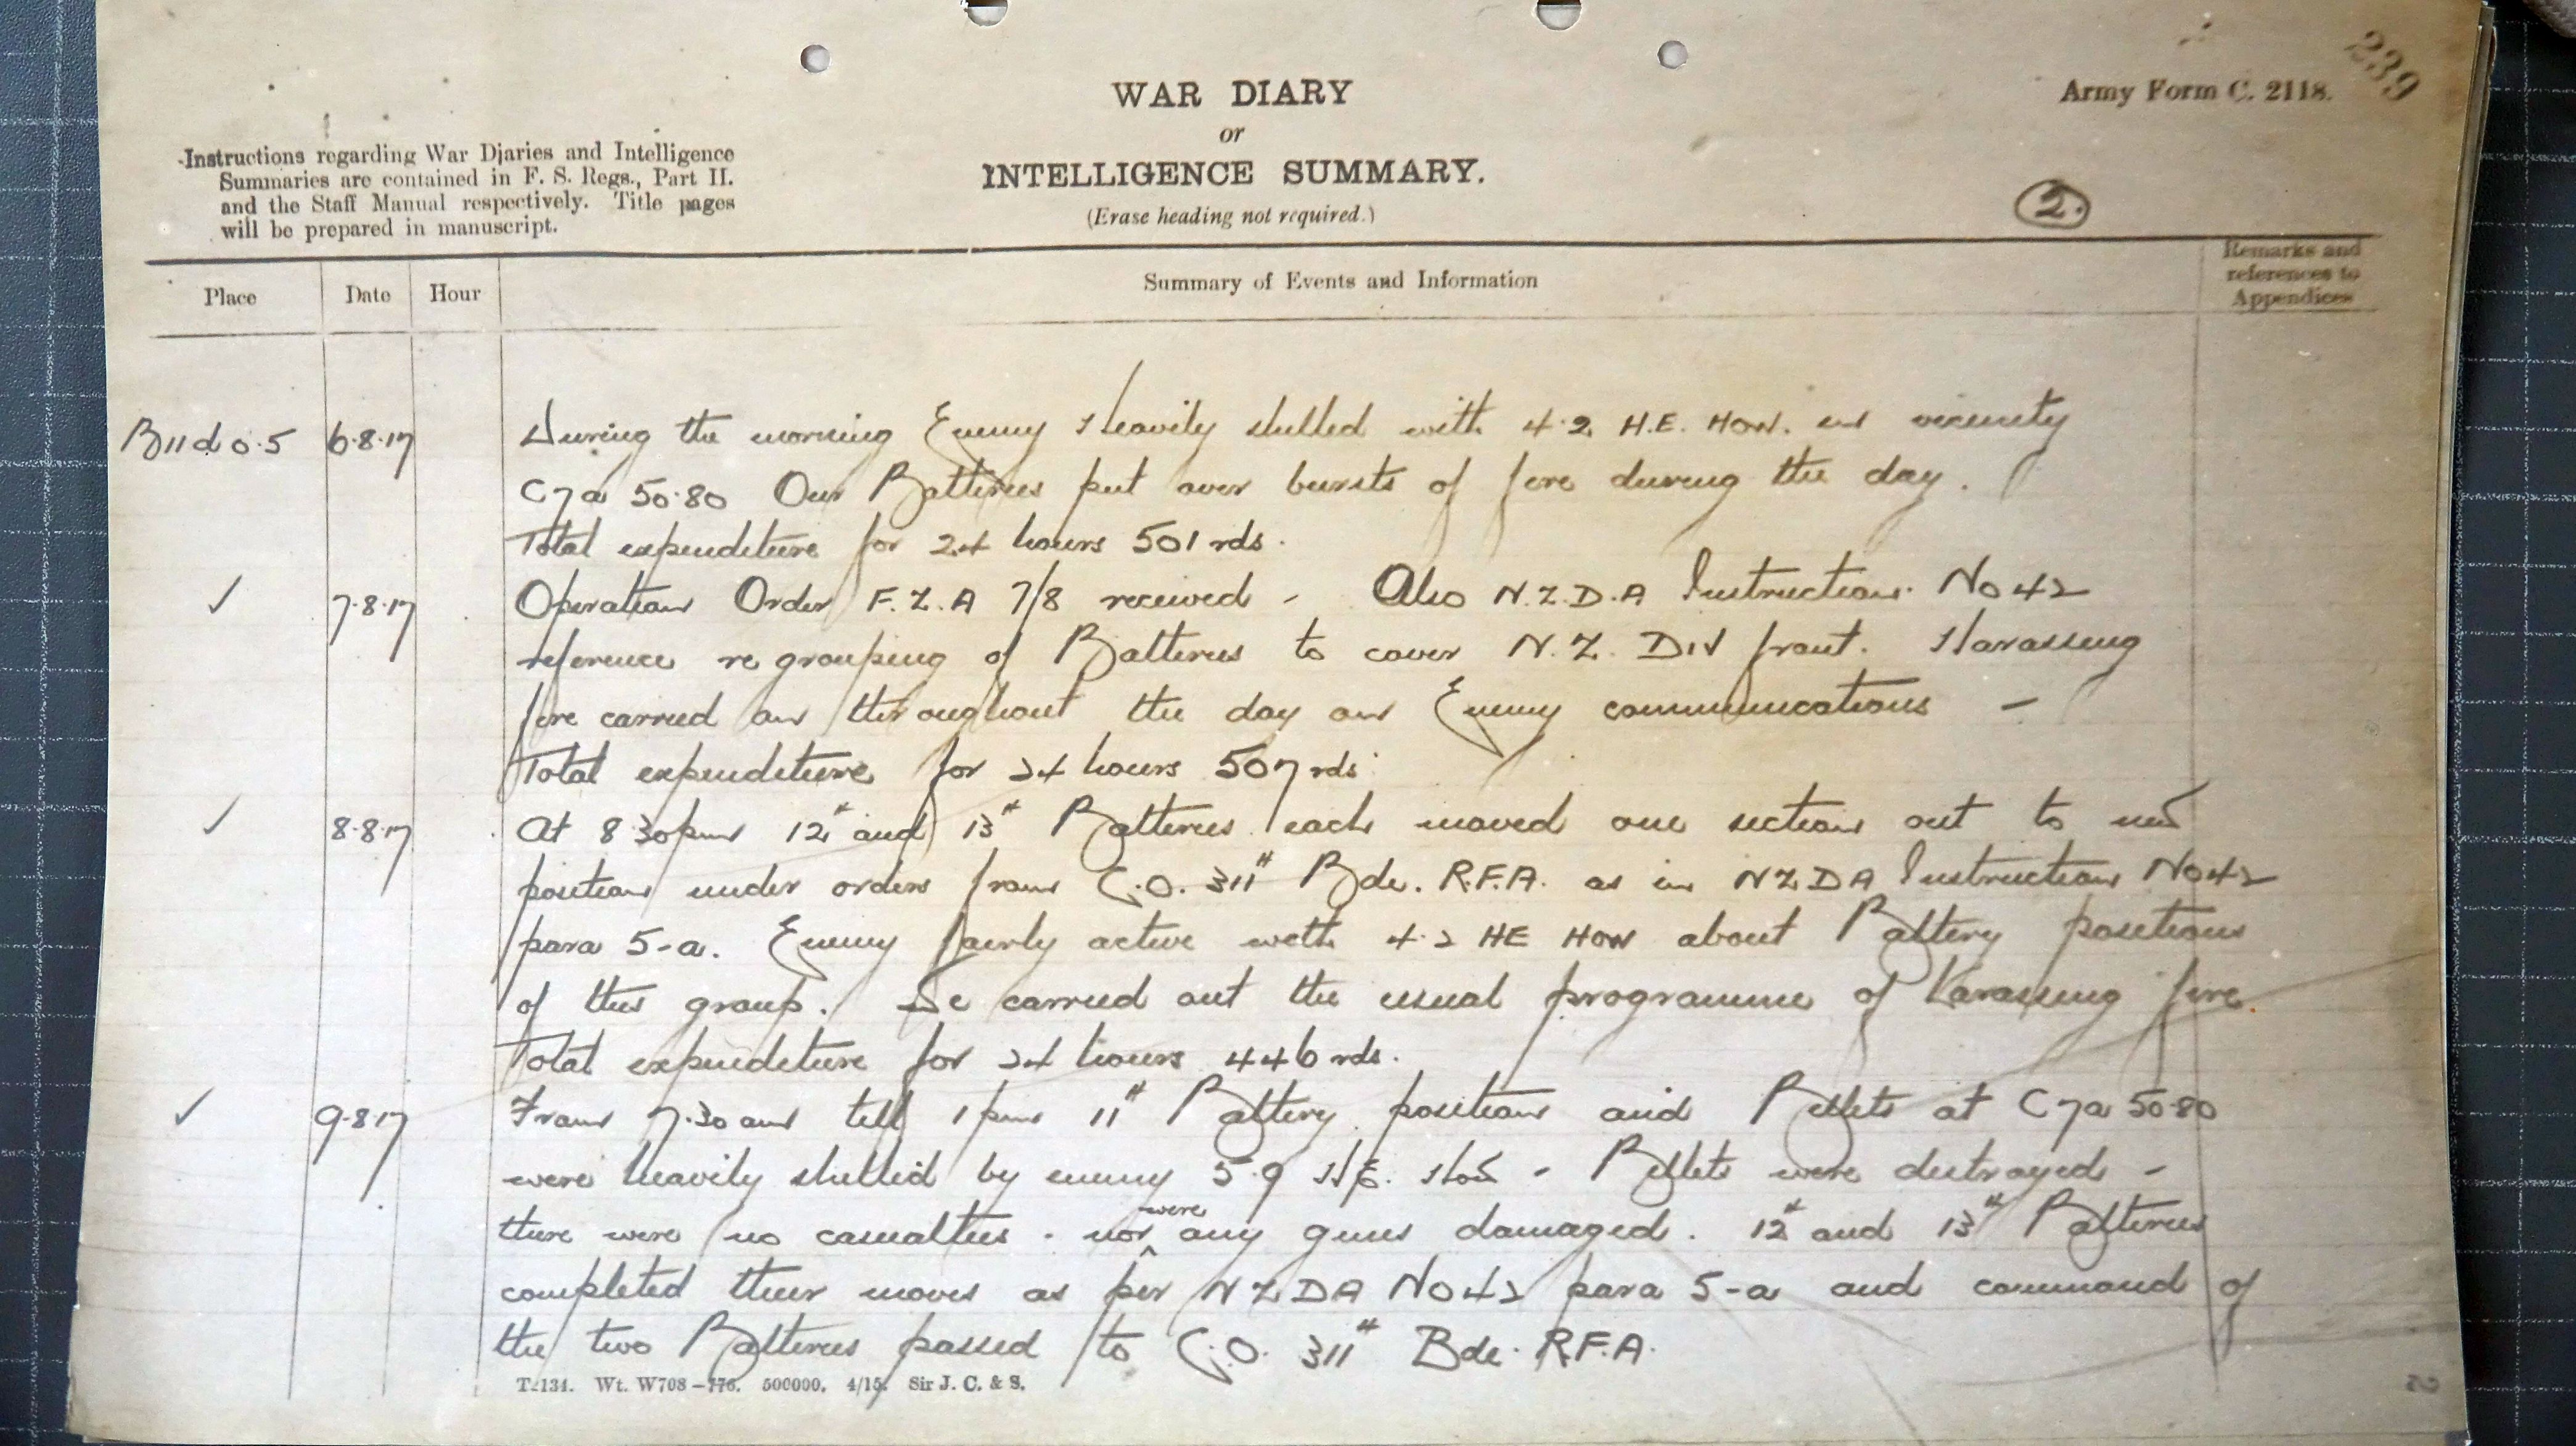 239
WAR DIARY
or
INTELLIGENCE SUMMARY.
(Erase heading not required.)
Army Form C. 2118.
Instructions regarding War Diaries and Intelligence
Summaries are contained in F. S. Regs., Part II.
and the Staff Manual respectively. Title pages
will be prepared in manuscript.
2.
Place Date Hour Summary of Events and Information Remarks and references to Appendices
B11d 0.5 6.8.17 During the morning Enemy Heavily shelled with 4.2 H.E. HOW. in vicinity
C7a 50.80 Our Batteries put over bursts of fire during the day.
Total expenditure for 24 hours 501 rds.
✓ 7.8.17 Operation Order F.Z.A 7/8 received - Also N.Z.D.A Instruction No 42
reference re grouping of Batteries to cover N.Z. DIV front. Harassing
fire carried on throughout the day on Enemy communications -
Total expenditure for 24 hours 507 rds.
✓ 8.8.17 At 8 30pm 12th and 13th Batteries each moved one section out to new
position under orders from C.O. 311th Bde. R.F.A. as in NZDA Instruction No 42
para 5-a. Enemy fairly active with 4.2 HE HOW about Battery positions
of this group. We carried out the usual programme of Harassing fire.
Total expenditure for 24 hours 446 rds.
✓ 9.8.17 From 7.30 am till 1 pm 11th Battery position and Billets at C7a 50.80
were heavily shelled by enemy 5.9 H.E. How - Billets were destroyed -
there were no casualties. nor were any guns damaged. 12th and 13th Batteries
completed their moves as per NZDA No 42 para 5-a and command of
the two Batteries passed to C.O. 311th Bde. R.F.A.
T.134. Wt. W708-776. 500000. 4/15. Sir J. C. & S.